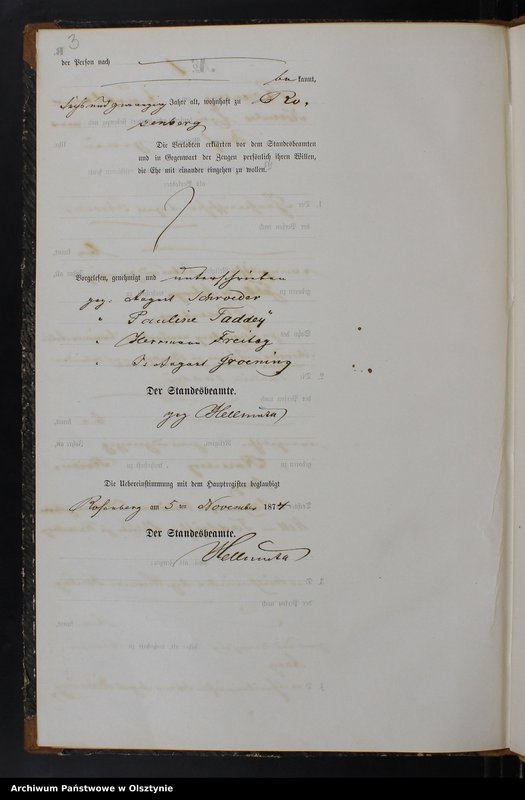 3
der Person nach
be kannt,
Sechs und zwanzig Jahre alt, wohnhaft zu Ro,
senberg
Die Verlobten erklärten vor dem Standesbeamten
und in Gegenwart der Zeugen persönlich ihren Willen,
die Ehe mit einander eingehen zu wollen.
Vorgelesen, genehmigt und unterschrieben
gez. August Schroeder
" Pauline Taddey
" Herrmann Freitag
" August Groening
Der Standesbeamte.
gez
Die Uebereinstimmung mit dem Hauptregister beglaubigt
Rosenberg am 5 ten November 1874
Der Standesbeamte.
Archiwum Państwowe w Olsztynie